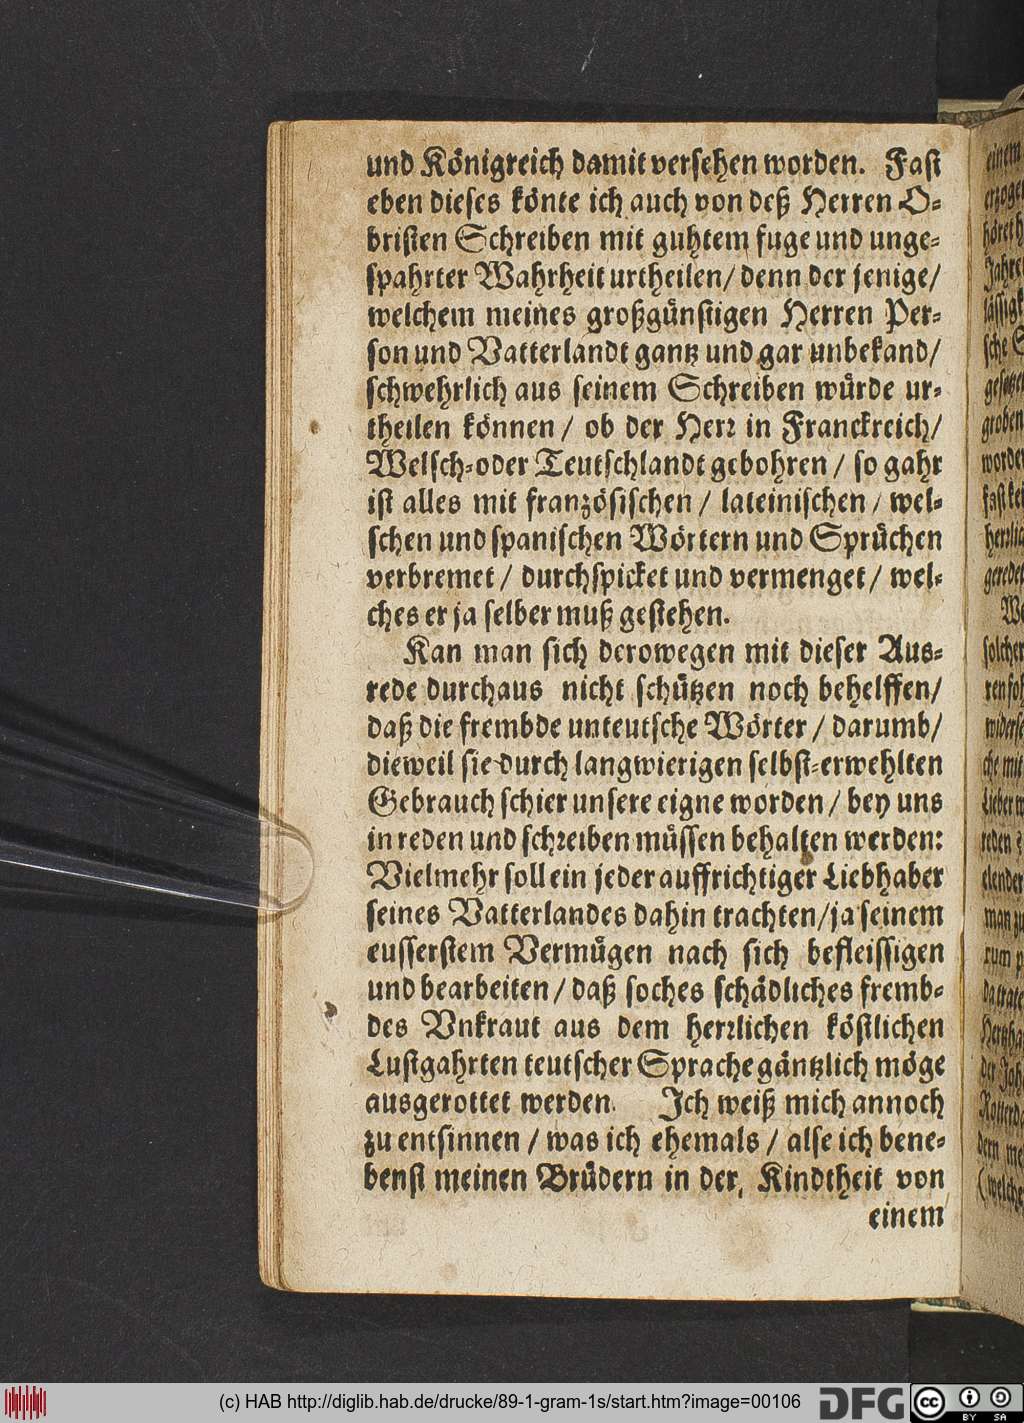 und Königreich damit versehen worden. Fast
eben dieses könte ich auch von deß Herren O-
bristen Schreiben mit guhtem fuge und unge-
spahrter Wahrheit urtheilen/ denn der jenige/
welchem meines großgünstigen Herren Per-
son und Vatterlandt gantz und gar unbekand/
schwehrlich aus seinem Schreiben würde ur-
theilen können / ob der Herr in Franckreich/
Welsch-oder Teutschlandt gebohren / so gahr
ist alles mit französischen / lateinischen / wel-
schen und spanischen Wörtern und Sprüchen
verbremet / durchspicket und vermenget / wel-
ches er ja selber muß gestehen.
Kan man sich derowegen mit dieser Aus-
rede durchaus nicht schützen noch behelffen/
daß die frembde unteutsche Wörter / darumb/
dieweil sie durch langwierigen selbst-erwehlten
Gebrauch schier unsere eigne worden / bey uns
in reden und schreiben müssen behalten werden:
Vielmehr soll ein jeder auffrichtiger Liebhaber
seines Vatterlandes dahin trachten/ja seinem
eusserstem Vermügen nach sich befleissigen
und bearbeiten / daß soches schädliches fremb-
des Vnkraut aus dem herrlichen köstlichen
Lustgahrten teutscher Sprache gäntzlich möge
ausgerottet werden. Ich weiß mich annoch
zu entsinnen / was ich ehemals / alse ich bene-
benst meinen Brüdern in der, Kindtheit von
einem
(c) HAB http://diglib.hab.de/drucke/89-1-gram-1s/start.htm?image=00106
DFG
cc BY SA